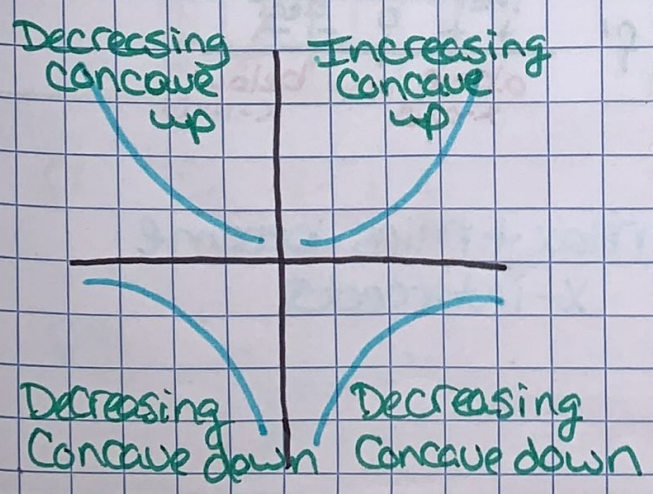 Decreasing
concave
up
Increasing
concave
up
Decreasing
Concave down
Decreasing
Concave down